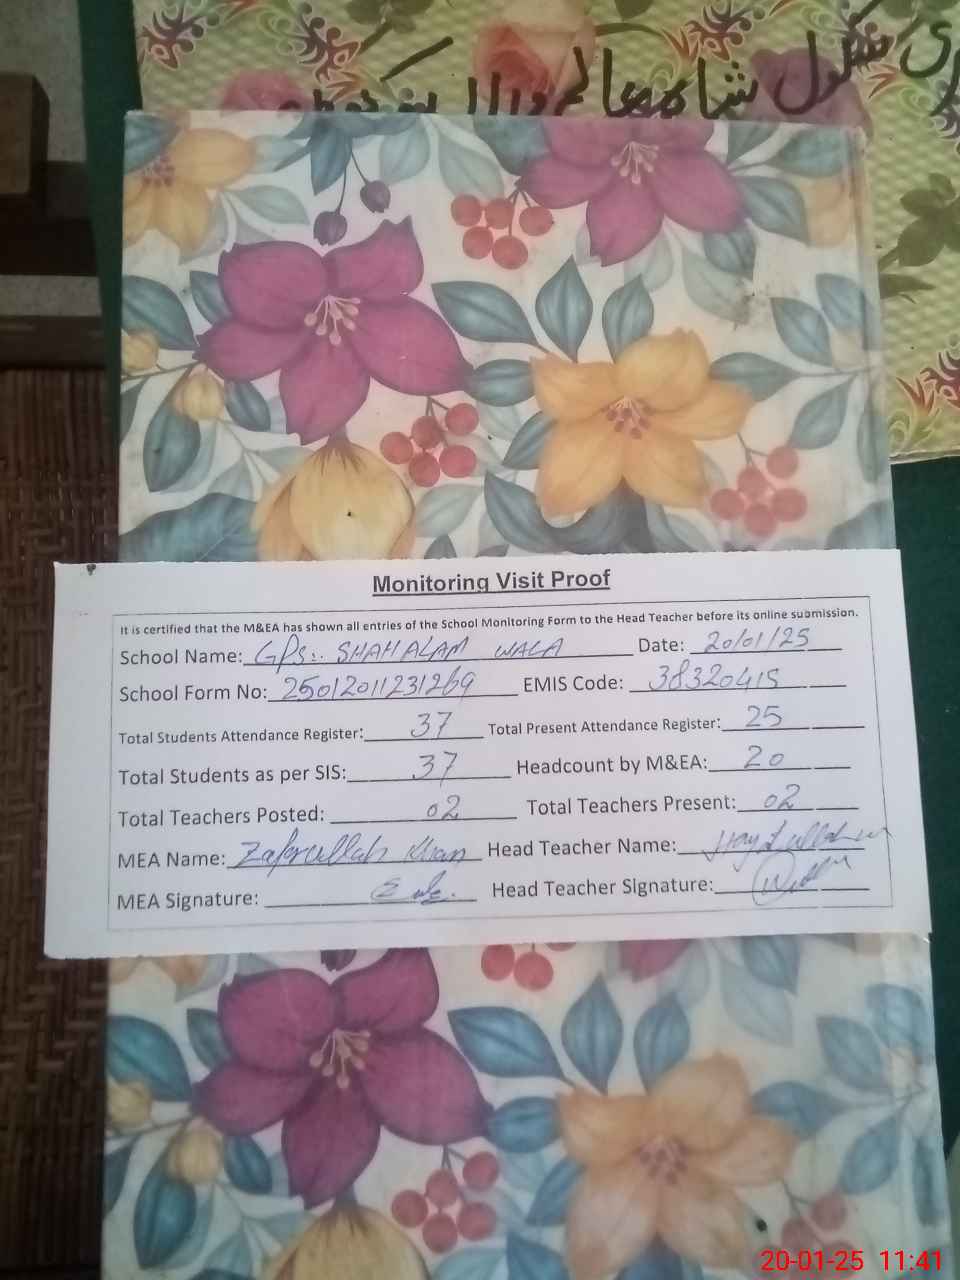 سکول شاہ عالم والا
Monitoring Visit Proof
It is certified that the M&EA has shown all entries of the School Monitoring Form to the Head Teacher before its online submission.
School Name: GPS:. SHAH ALAM WALA Date: 20/01/25
School Form No: 25012011231269 EMIS Code: 38320415
Total Students Attendance Register: 37 Total Present Attendance Register: 25
Total Students as per SIS: 37 Headcount by M&EA: 20
Total Teachers Posted: 02 Total Teachers Present: 02
MEA Name: Zafrullah Khan Head Teacher Name:
MEA Signature: Head Teacher Signature:
20-01-25 11:41